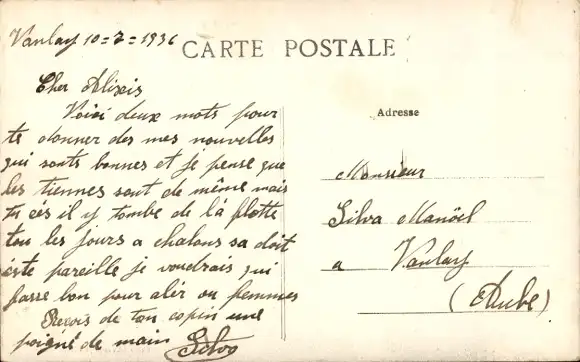 Vanlay 10=2=1936
CARTE POSTALE
Cher Alixeis
Voici deux mots pour
te donner des mes nouvelles
qui sonts bonnes et je pense que
les tiennes sont de même mais
tu ces il y tombe de la flotte
tou les jours a chalons sa doit
éste pareille je voudrais qui
fasse bon pour alér ou femmes
Recois de ton copin une
poigné de main Silva
Adresse
Monsieur
Silva Manöel
a Vanlay
(Aube)